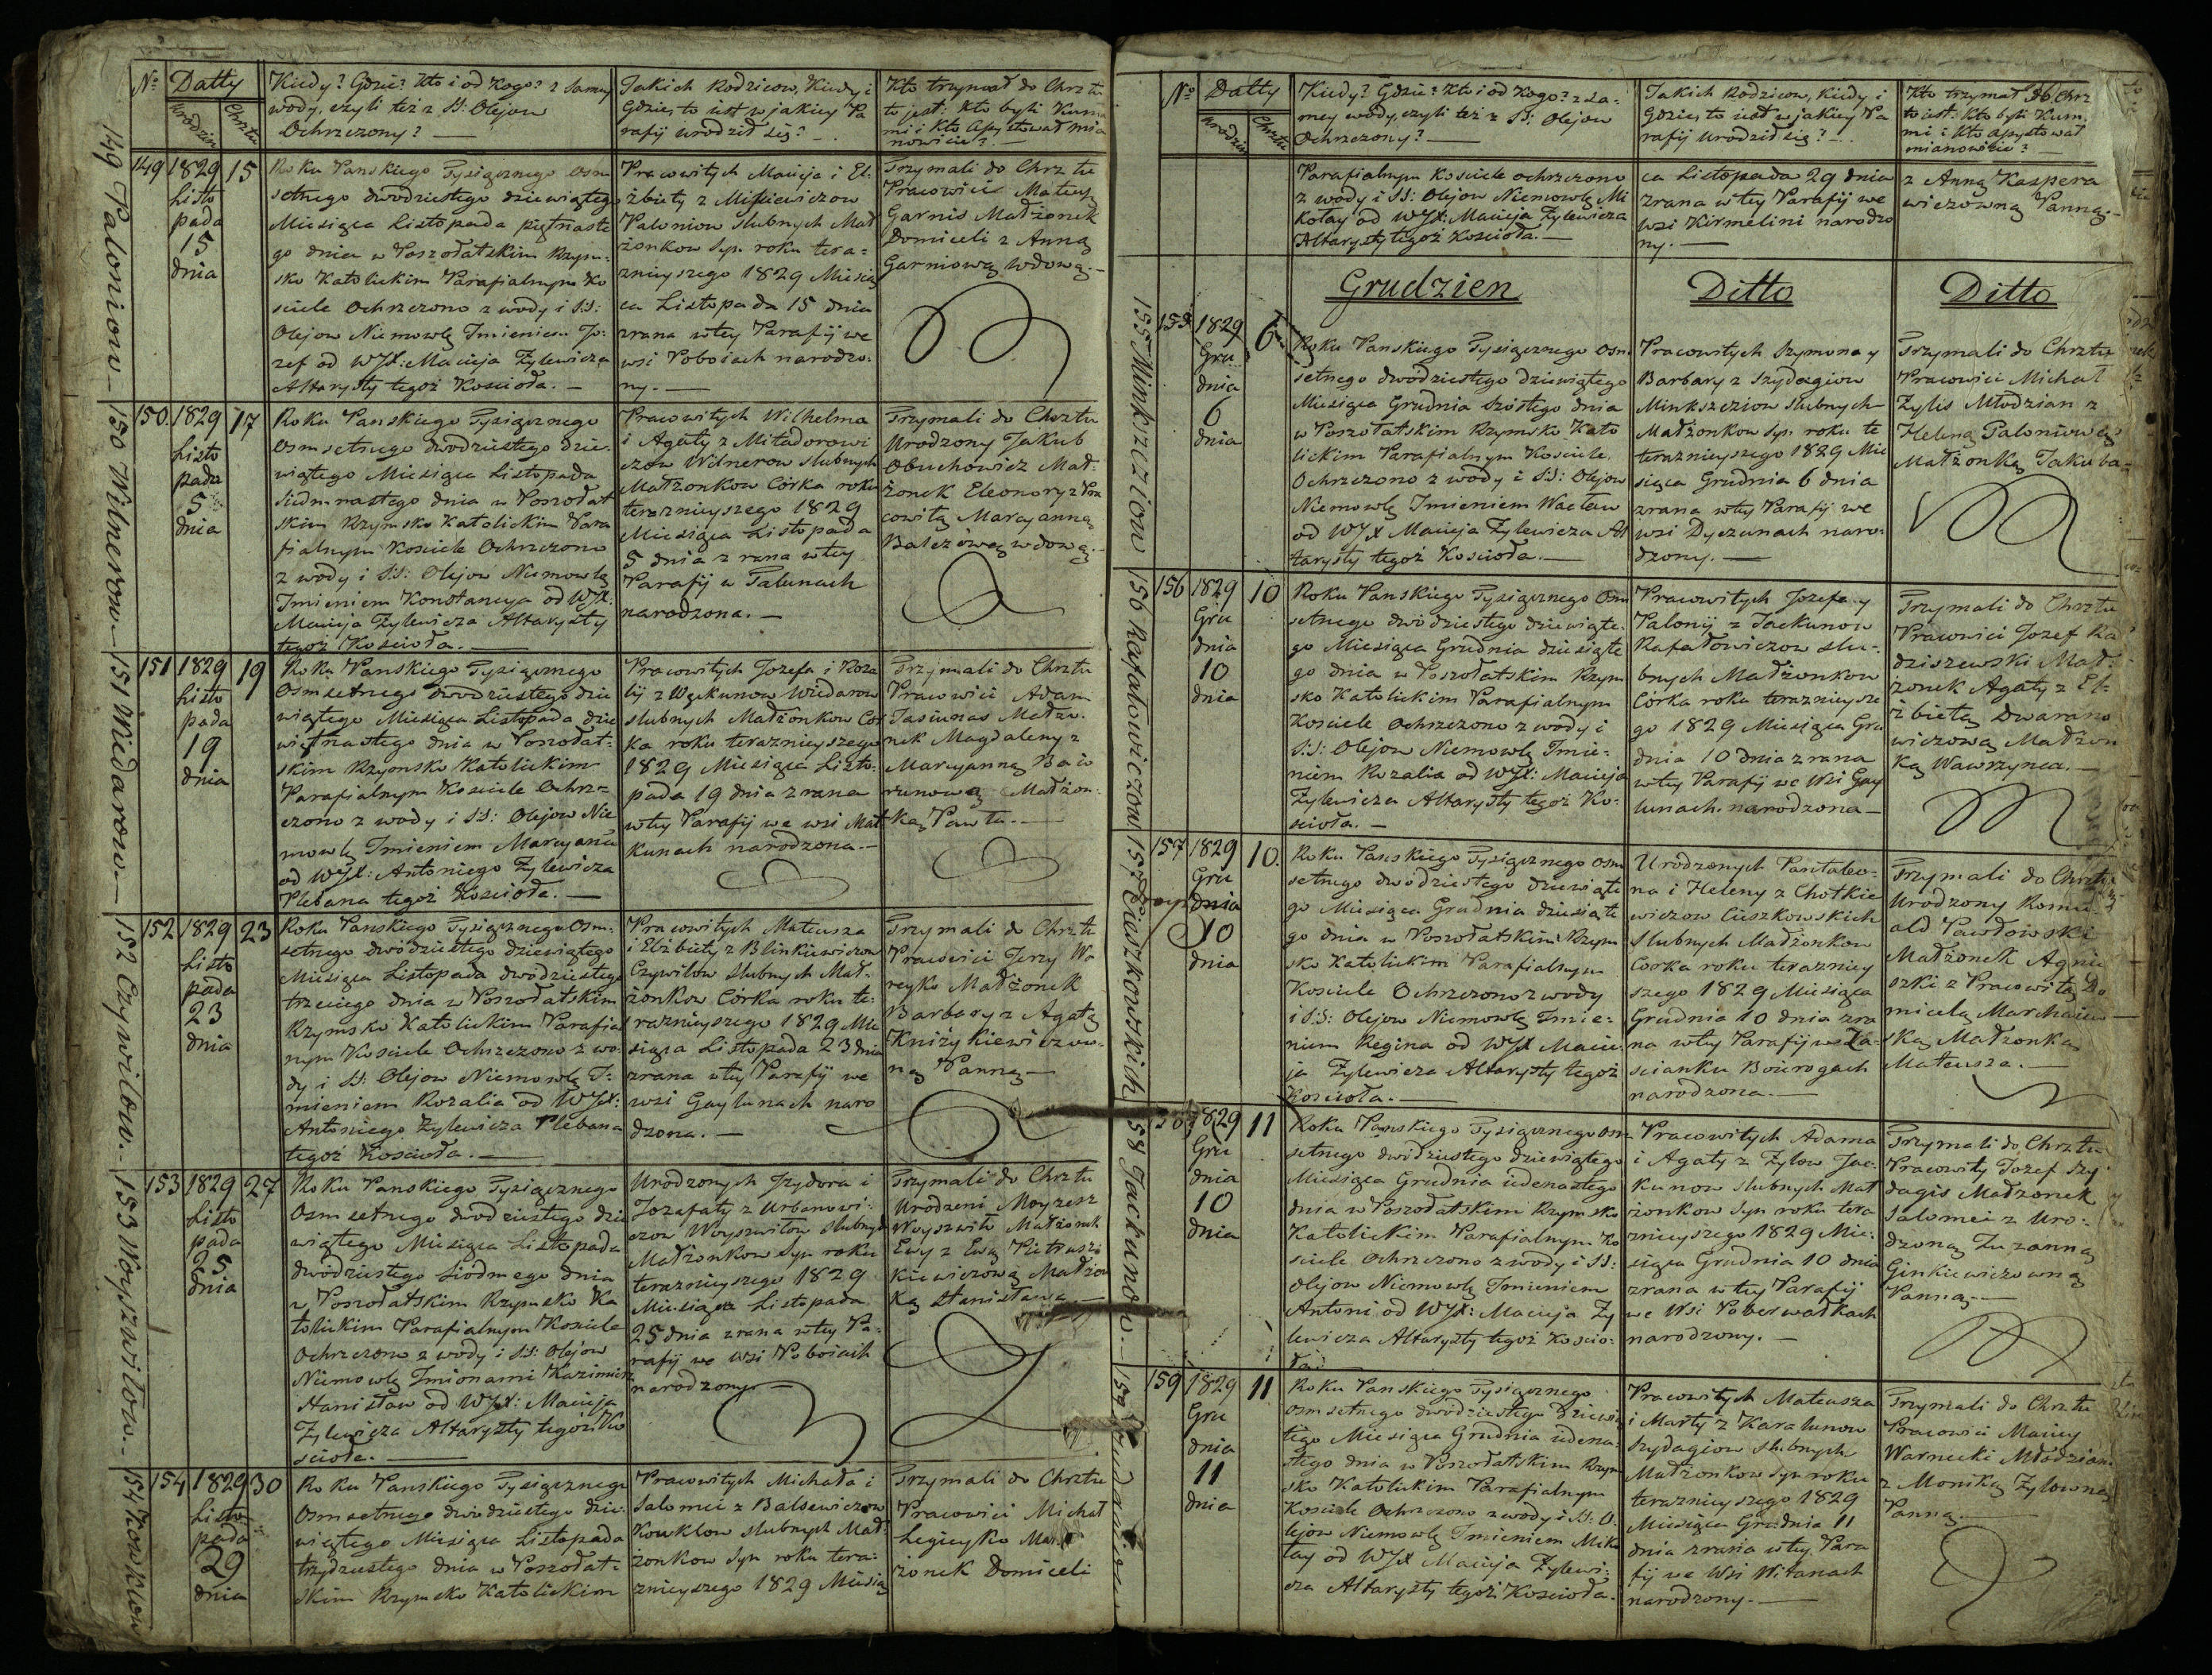 No
Datty
Urodzin
Chrztu
Kiedy? Gdzie? Kto i od Kogo? z samey
wody, czyli też z SS: Olejow
Ochrzczony? —
Jakich Rodzicow, Kiedy i
Gdzie, to iest w jakiey Pa
rafij urodził się? —
Kto trzymał do Chrztu
to jest: Kto byli Kuma
mi i Kto Assystował mia
nowicie? —
149 Paloniow —
149
1829
Listo
pada
15
dnia
15
Roku Panskiego Tysiącznego Osm
setnego dwódziestego dziewiątego
Miesiąca Listopada piętnaste
go dnia w Poszołatskim Rzym:
sko Katolickim Parafialnym Ko
sciele Ochrzczono z wody i SS:
Olejow Niemowlę Imieniem Jo:
zef od WJX: Macieja Zylewicza
Altarysty tegoż Kościoła. —
Pracowitych Macieja i El:
żbiety z Mickiewiczow
Paloniow slubnych Mał
żonkow Syn roku tera:
znieyszego 1829 Miesią
ca Listopada 15 dnia
zrana w tey Parafij we
wsi Poboiach narodzo:
ny. —
Trzymali do Chrztu
Pracowici Mateusz
Garnis Małżonek
Domiceli z Anną
Garniową wdową. —
150 Wilnerow —
150.
1829
Listo
pada
5
dnia
17
Roku Panskiego Tysiącznego
Osmsetnego dwódziestego dzie:
wiątego Miesiąca Listopada
siedmnastego dnia w Poszołat
skim Rzymsko Katolickim Para
fialnym Kosciele Ochrzczono
z wody i SS: Olejow Niemowlę
Imieniem Konstancya od WJX:
Macieja Zylewicza Altarysty
tegoż Kościoła. —
Pracowitych Wilhelma
i Agaty z Mitadorowi
czow Wilnerow slubnych
Małżonkow Córka roku
teraznieyszego 1829
Miesiąca Listopada
5 dnia z rana w tey
Parafij w Palunach
narodzona. —
Trzymali do Chrztu
Urodzony Jakub
Obuchowicz Mał:
żonek Eleonory z Pra
cowitą Maryanną
Balczową wdową. —
151 Wiedarow —
151
1829
Listo
pada
19
dnia
19
Roku Panskiego Tysiącznego
Osmsetnego dwódziestego dzie
wiątego Miesiąca Listopada dzie
więtnastego dnia w Poszołat:
skim Rzymsko Katolickim
Parafialnym Kosciele Ochrz=
czono z wody i SS: Olejow Nie
mowlę Imieniem Maryanna
od WJX: Antoniego Zylewicza
Plebana tegoż Kościoła. —
Pracowitych Jozefa i Roza
lij z Wyekunow Wiedarow
slubnych Małżonkow Cór
ka roku teraznieyszego
1829 Miesiąca Listo:
pada 19 dnia zrana
w tey Parafij we wsi Mat
kunach narodzona. —
Trzymali do Chrztu
Pracowici Adam
Jasiunas Małżo:
nek Magdaleny z
Maryanną Baw
runową Małżon:
ką Pawła. —
152 Czywilow. —
152
1829
Listo
pada
23
dnia
23
Roku Panskiego Tysiącznego Osm:
setnego dwódziestego dziewiątego
Miesiąca Listopada dwódziestego
trzeciego dnia w Poszołatskim
Rzymsko Katolickim Parafial
nym Kosciele Ochrzczono z wo:
dy i SS: Olejow Niemowlę I:
mieniem Rozalia od WJX:
Antoniego Zylewicza Plebana
tegoż Kościoła. —
Pracowitych Mateusza
i Elżbiety z Blinkiewiczow
Czywilow slubnych Mał:
żonkow Córka roku te:
raznieyszego 1829 Mie
siąca Listopada 23 dnia
zrana w tey Parafij we
wsi Gaylunach naro
dzona. —
Trzymali do Chrztu
Pracowici Jerzy Wo
reyko Małżonek
Barbary z Agatą
Kniżykiewiczow:
ną Panną —
153 Woyszwiłow. —
153
1829
Listo
pada
25
dnia
27
Roku Panskiego Tysiącznego
Osmsetnego dwódziestego dzie
wiątego Miesiąca Listopada
dwódziestego siodmego dnia
w Poszołatskim Rzymsko Ka
tolickim Parafialnym Kosciele
Ochrzczono z wody i SS: Olejow
Niemowlę Imionami Kazimierz
Stanisław od WJX: Macieja
Zylewicza Altarysty tegoż Ko
scioła. —
Urodzonych Izydora i
Jozafaty z Urbanowi:
czow Woyszwiłow slubnych
Małżonkow Syn roku
teraznieyszego 1829
Miesiąca Listopada
25 dnia zrana w tey Pa:
rafij we wsi Poboiach
narodzony. —
Trzymali do Chrztu
Urodzeni Moyzesz
Woyszwiło Małżonek
Ewy z Ewą Pietraszi
kiewiczową Małżon
ką Stanisława. —
154 Kowklow
154
1829
Listo
pada
29
dnia
30
Roku Panskiego Tysiącznego
Osmsetnego dwódziestego dzie:
wiątego Miesiąca Listopada
trzydziestego dnia w Poszołat:
skim Rzymsko Katolickim
Pracowitych Michała i
Salomei z Balsewiczow
Kowklow slubnych Mał:
żonkow Syn roku tera:
znieyszego 1829 Miesią
Trzymali do Chrztu
Pracowici Michał
Legieyko Mał
żonek Domiceli
No
Datty
Urodzin
Chrztu
Kiedy? Gdzie? Kto i od Kogo? z sa:
mey wody, czyli też z SS: Olejow
Ochrzczony? —
Jakich Rodzicow, Kiedy i
Gdzie, to iest w jakiey Pa
rafij urodził się? —
Kto trzymał do Chrz
to iest: Kto byli Kum:
mi i Kto Assystował
mianowicie? —
Parafialnym Kosciele ochrzczono
z wody i SS: Olejow Niemowlę Mi
kołay od WJX: Macieja Zylewicza
Altarysty tegoż Kościoła. —
ca Listopada 29 dnia
zrana w tey Parafij we
wsi Kirmelini narodzo
ny. —
z Anną Kaspera
wiczowną Panną. —
Grudzien
Ditto
Ditto
155 Minkszcziow
155
1829
Gru
dnia
6
dnia
6
Roku Panskiego Tysiącznego Osm:
setnego dwódziestego dziewiątego
Miesiąca Grudnia szóstego dnia
w Poszołatskim Rzymsko Kato
lickim Parafialnym Kosciele.
Ochrzczono z wody i SS: Olejow
Niemowlę Imieniem Wacław
od WJX Macieja Zylewicza Al
tarysty tegoż Kościoła. —
Pracowitych Szymona y
Barbary z Szydagiow
Minkszcziow slubnych
Małżonkow Syn roku te
teraznieyszego 1829 Mie
siąca Grudnia 6 dnia
zrana w tey Parafij we
wsi Dyczunach naro:
dzony. —
Trzymali do Chrztu
Pracowici Michał
Zylis Młodzian z
Heleną Paloniową
Małżonką Jakuba —
156 Rafałowiczow
156
1829
Gru
dnia
10
dnia
10
Roku Panskiego Tysiącznego Osm
setnego dwódziestego dziewiąte:
go Miesiąca Grudnia dziesiąte
go dnia w Poszołatskim Rzym
sko Katolickim Parafialnym
Kosciele Ochrzczono z wody i
SS: Olejow Niemowlę Imie:
niem Rozalia od WJX: Macieja
Zylewicza Altarysty tegoż Ko:
scioła. —
Pracowitych Jozefa y
Palonij z Jackunow
Rafałowiczow slu:
bnych Małżonkow
Córka roku teraznieysze
go 1829 Miesiąca Gru
dnia 10 dnia zrana
w tey Parafij we Wsi Gay
lunach. narodzona —
Trzymali do Chrztu
Pracowici Jozef Ra
dziszewski Mał:
żonek Agaty z El:
żbietą Dwarano
wiczową Małżon
ką Wawrzynca. —
157 Ciaszkowskich
157
1829
Gru
dnia
10
dnia
10.
Roku Panskiego Tysiącznego Osm
setnego dwódziestego dziewiąte
go Miesiąca Grudnia dziesiąte
go dnia w Poszołatskim Rzym
sko Katolickim Parafialnym
Kosciele Ochrzczono z wody
i SS: Olejow Niemowlę Imie:
niem Regina od WJX Macie:
ja Zylewicza Altarysty tegoż
Kościoła. —
Urodzonych Pantaleo:
na i Heleny z Chotkie
wiczow Ciszkowskich
Slubnych Małżonkow
Corka roku terazniey
szego 1829 Miesiąca
Grudnia 10 dnia zra
na w tey Parafij w Za:
scianku Bourogach
narodzona. —
Trzymali do Chrztu
Urodzony Romu:
ald Pawłowski
Małżonek Agnie
szki z Pracowitą Do
micelą Marchaiew
ską Małżonką
Mateusza. —
158 Jackunow. —
158
1829
Gru
dnia
10
dnia
11
Roku Panskiego Tysiącznego Osm
setnego dwódziestego dziewiątego
Miesiąca Grudnia iedenastego
dnia w Poszołatskim Rzymsko
Katolickim Parafialnym Ko
sciele Ochrzczono z wody i SS:
Olejow Niemowlę Imieniem
Antoni od WJX: Macieja Zy
lewicza Altarysty tegoż Koscio:
ła
Pracowitych Adama
i Agaty z Zylow Jac:
kunow slubnych Mał
żonkow Syn roku tera
znieyszego 1829 Mie:
siąca Grudnia 10 dnia
zrana w tey Parafij
we Wsi Poberwałkach
narodzony. —
Trzymali do Chrztu
Pracowity Jozef Szy
dagis Małżonek
Salomei z Uro:
dzoną Zuzanną
Ginkiewiczowną
Panną. —
159
159
1829
Gru
dnia
11
dnia
11
Roku Panskiego Tysiącznego
Osmsetnego dwódziestego dziewią
tego Miesiąca Grudnia iedena:
stego dnia w Poszołatskim Rzym
sko Katolickim Parafialnym
Kosciele Ochrzczono z wody i SS: O:
lejow Niemowlę Imieniem Miko
łay od WJX Macieja Zylewi:
cza Altarysty tegoż Kościoła.
Pracowitych Mateusza
i Marty z Karalunow
Szydagiow slubnych
Małżonkow Syn roku
teraznieyszego 1829
Miesiąca Grudnia 11
dnia zrana w tey Para
fij we Wsi Witanach
narodzony. —
Trzymali do Chrztu
Pracowici Maciey
Warnecki Młodzian
z Moniką Zylowną
Panną. —